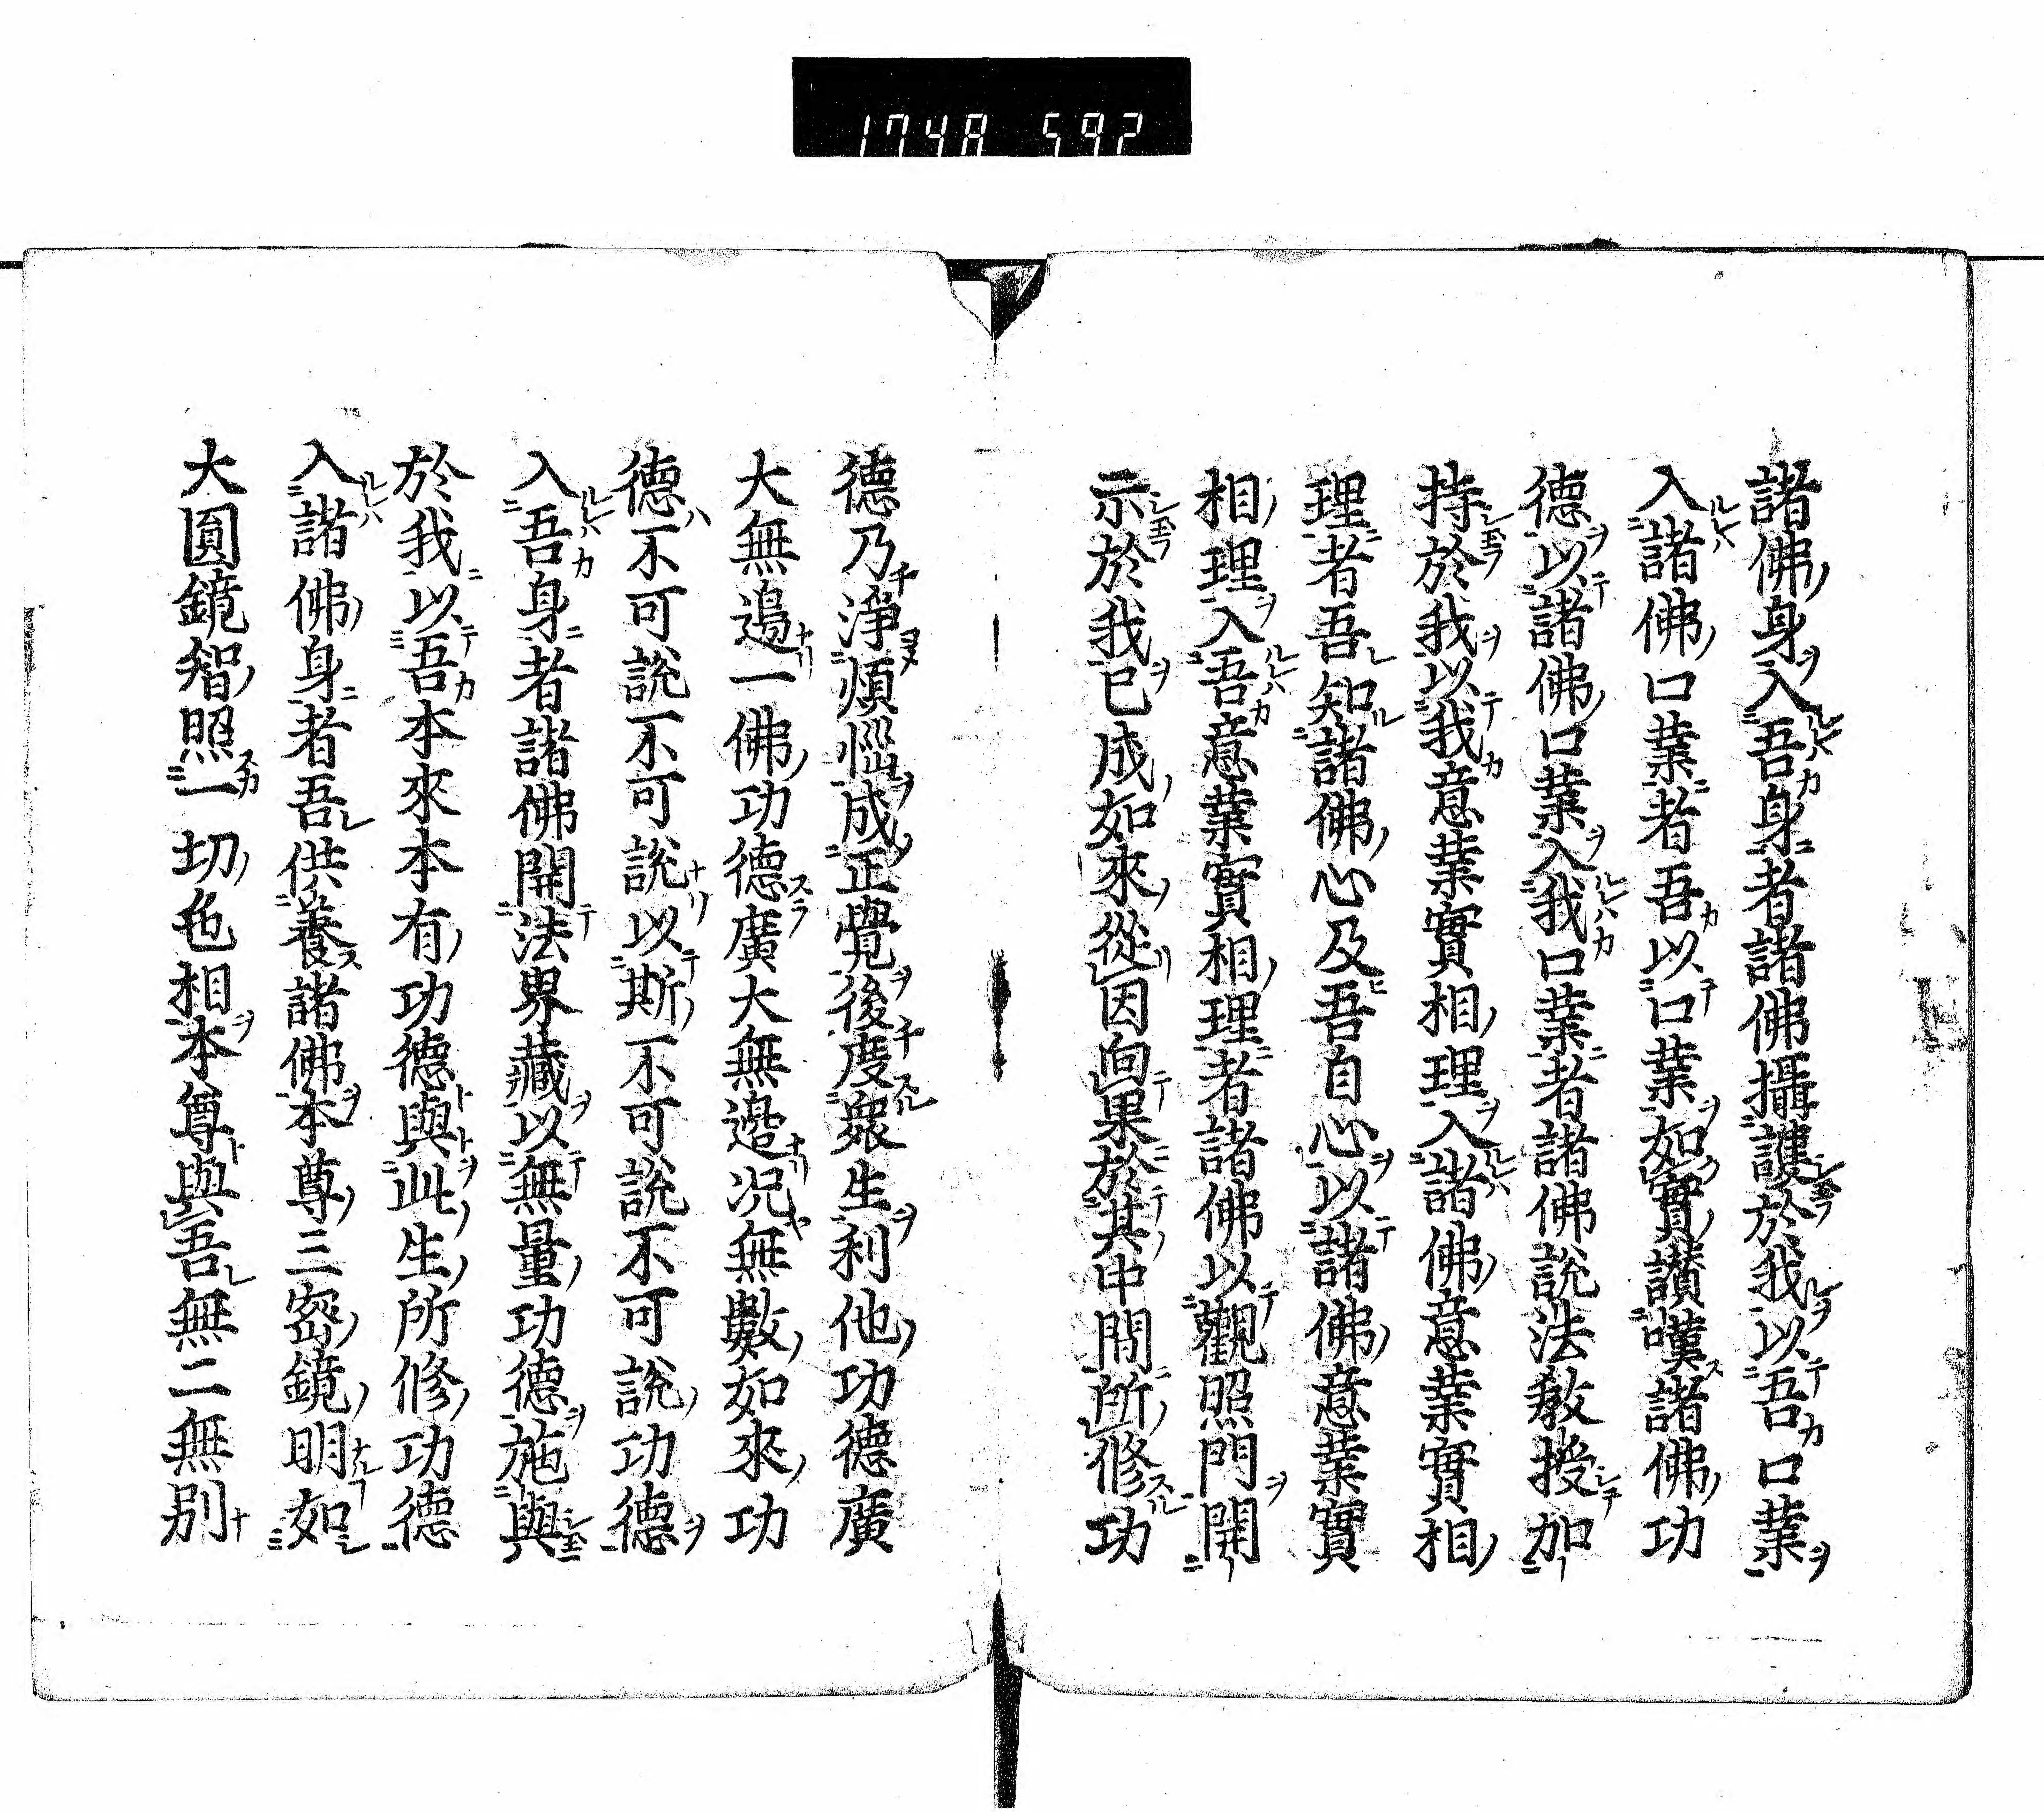 1748 592
諸佛身入吾身者諸佛攝護於我以吾口業
入諸佛口業者吾以口業如實讃嘆諸佛功
德以諸佛口業入我口業者諸佛說法教授加
持於我以我意業實相理入諸佛意業實相
理者吾知諸佛心及吾自心以諸佛意業實
相理入吾意業實相理者諸佛以觀照門開
示於我已成如來從因向果於其中間所修功
德乃淨煩惱成正覺後度衆生利他功德廣
大無邊一佛功德廣大無邊况無數如來功
德不可說不可說以斯不可說不可說功德
入吾身者諸佛開法界藏以無量功德施與
於我以吾本來本有功德與此生所修功德
入諸佛身者吾供養諸佛本尊三密鏡明如
大圓鏡智照一切色相本尊與吾無二無別